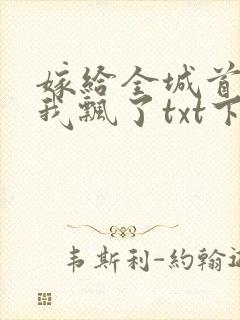 嫁給全城首
我飄了txt下
韦斯利-約翰